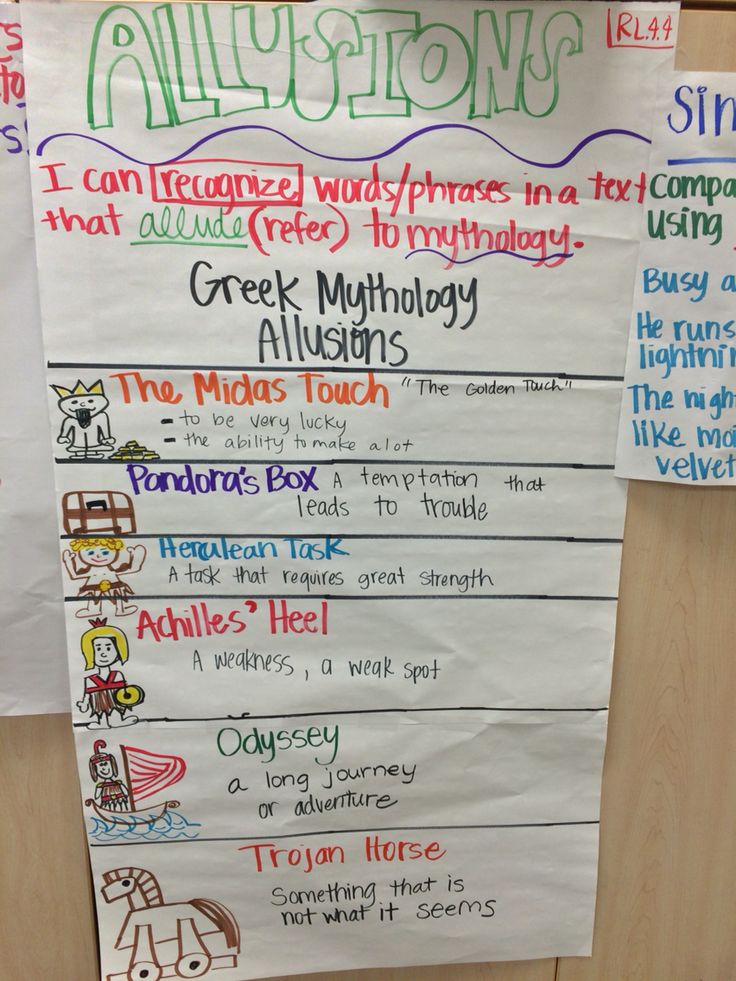 ALLUSIONS
RL.4.4
I can recognize words/phrases in a text
that allude (refer) to mythology.
Greek Mythology
Allusions
The Midas Touch "The Golden Touch"
- to be very lucky
- the ability to make a lot
Pandora's Box A temptation that
leads to trouble
Herulean Task
A task that requires great strength
Achilles' Heel
A weakness, a weak spot
Odyssey
a long journey
or adventure
Trojan Horse
Something that is
not what it seems
using
Busy a
He runs
The night
like
velvet